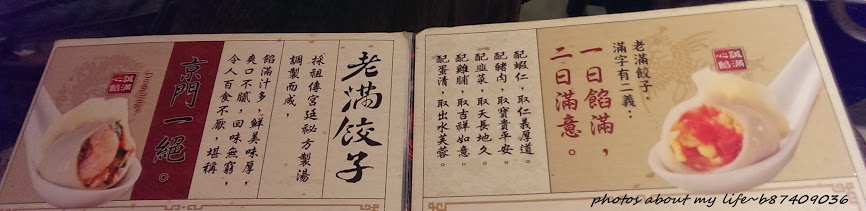 誠滿
心餡
老滿餃子，
滿字有二義：
一曰餡滿，
二曰滿意。
配蝦仁，取仁義厚道。
配豬肉，取寶貴平安。
配韭菜，取天長地久。
配雞脯，取吉祥如意。
配蛋清，取出水芙蓉。
老滿餃子
採祖傳宮廷祕方製湯
調製而成，
餡滿汁多，鮮美味厚，
爽口不膩，回味無窮，
令人百食不厭，堪稱
京門一絕。
誠滿
心餡
Dumplings
photos about my life~b87409036